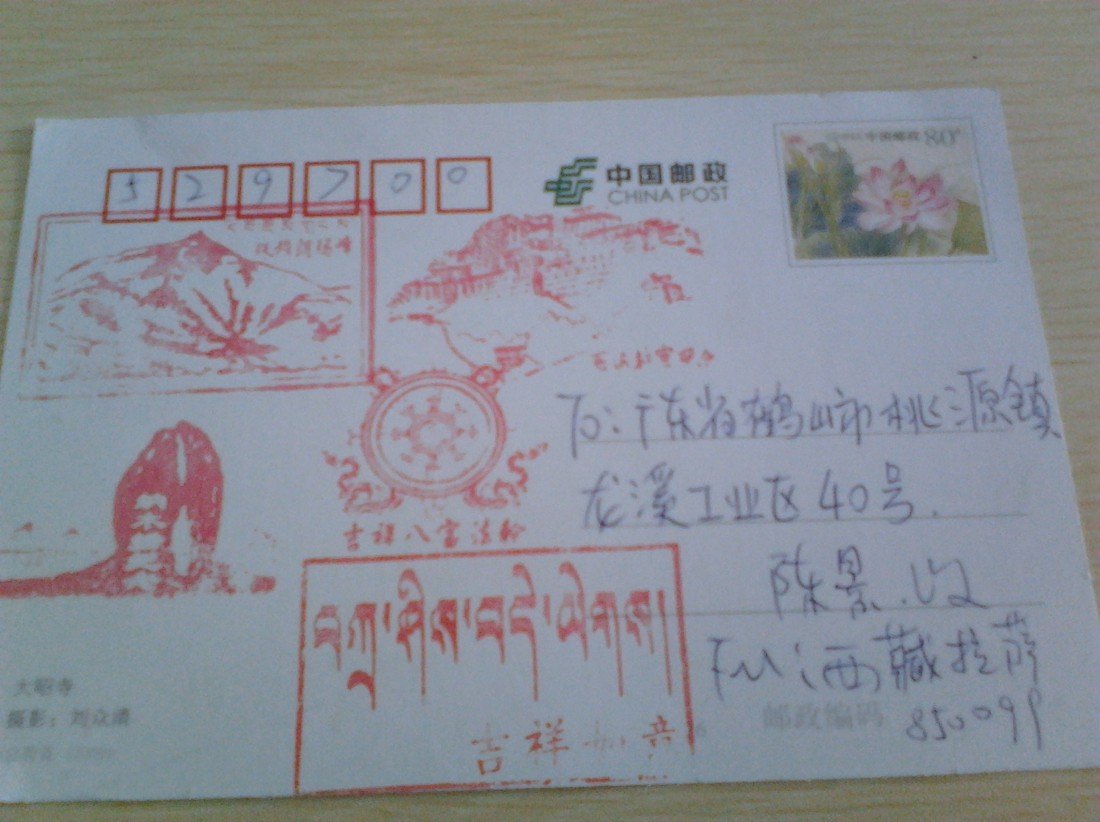 529700
中国邮政
CHINA POST
中国邮政 80分
To：广东省鹤山市桃源镇
龙溪工业区40号.
陈景.收
吉祥八宝法轮
བཀྲ་ཤིས་བདེ་ལེགས།
吉祥如意
From：西藏拉萨
邮政编码
850099
大昭寺
摄影：刘众清